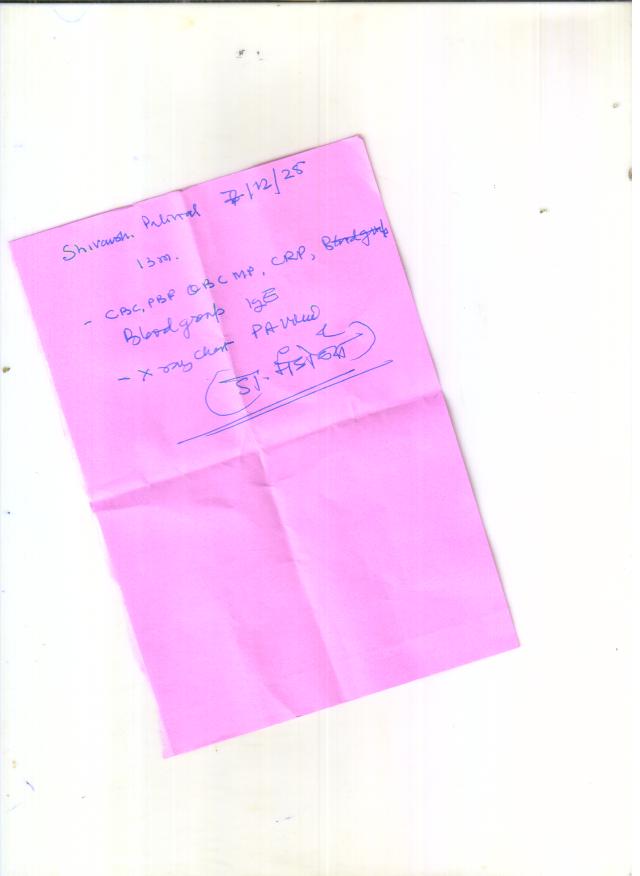 Shivansh Paliwal 7/12/25
13m.
- CBC, PBF QBC MP, CRP,
Blood group IgE
- X ray chest PA view
डॉ.